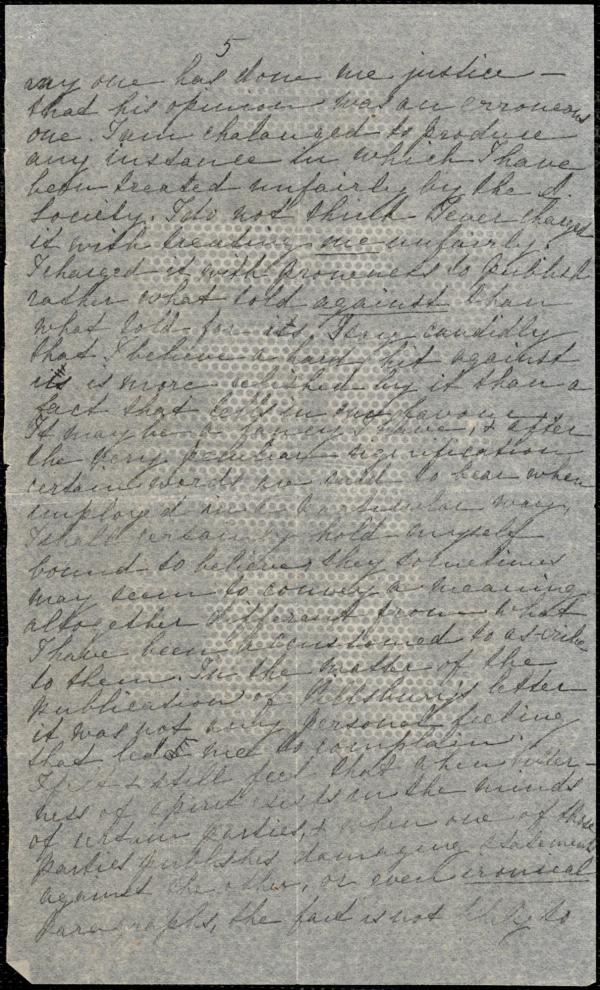 5
any one has done me justice —
that his opinion was an erroneous
one. I am chalanged to produce
any instance in which I have
been treated unfairly by the A.
Society. I do not think I ever charged
it with treating me unfairly.
I charged it with proneness to publish
rather what told against than
what told for us. I say candidly
that I believe a hard hit against
us is more relished by it than a
fact that tells in our favour.
It may be a fancy I have, & after
the very peculiar signification
certain words are said to bear when
employed in a particular way,
I shall certainly hold myself
bound to believe they sometimes
may seem to convey a meaning
altogether different from what
I have been accustomed to ascribe
to them. In the matter of the
publication of Pillsbury's letter
it was not any personal feeling
that led me to complain.
I felt & still feel that when bitter-
ness of spirit exists in the minds
of certain parties, & when one of those
parties publishes damaging statements
against the other, or even ironical
paragraphs, the fact is not likely to